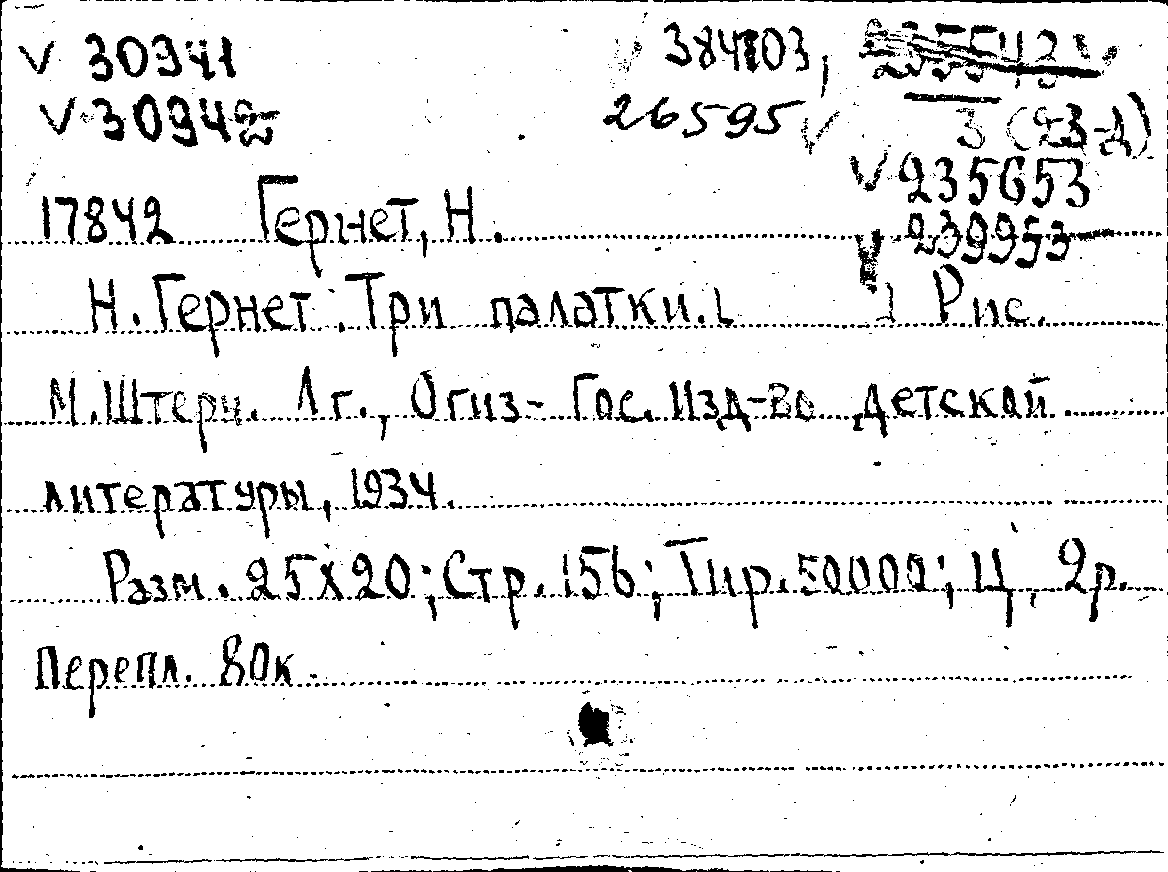 V 30941
V 30942
384103,
26595 V
3 (23-Д)
V 235653
V 239953
17842 Гернет, Н.
Н. Гернет. Три палатки. [ ] Рис.
М. Штерн. Лг., Огиз - Гос. Изд-во детской
литературы, 1934.
Разм. 25х20; Стр. 156; Тир. 50000; Ц. 2р.
Перепл. 80к.